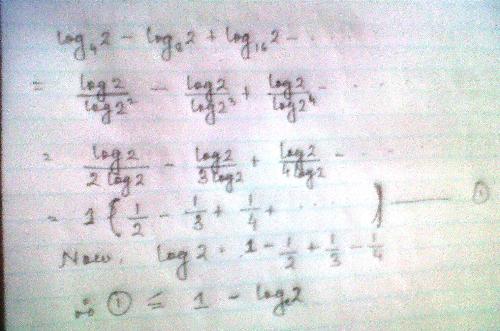 log₄2 - log₈2 + log₁₆2 - ....
= log2/log2² - log2/log2³ + log2/log2⁴ - ....
= log2/2log2 - log2/3log2 + log2/4log2 - ....
= 1 { 1/2 - 1/3 + 1/4 + .... } —— ①
Now, log2 = 1 - 1/2 + 1/3 - 1/4
∴ ① = 1 - logₑ2